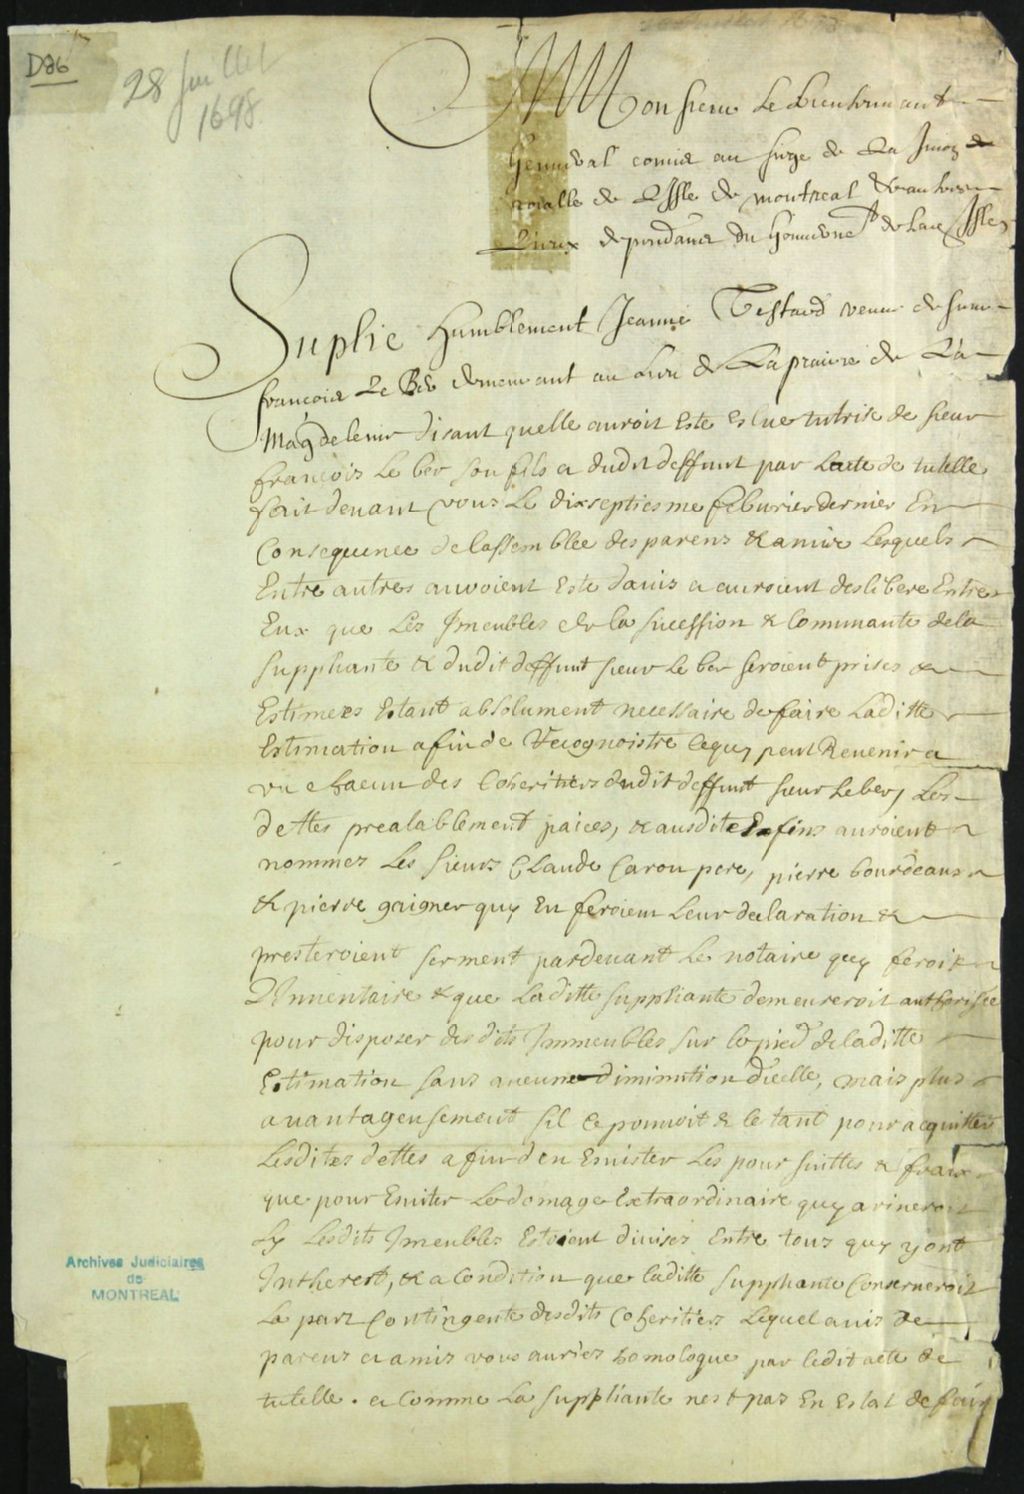 D86
28 Juillet
1698
Monsieur Le Lieutenant
General comis au siege de La
roialle de Lisle de montreal & autres
Lieux dependans du Gouvernem.t de lad Isle
Suplie Humblement Jeanne Testard veuve de feu
francois Le Ber demeurant au Lieu de La prairie de La
Magdeleine disant quelle auroit Este Eslue tutrise de sieur
francois Le ber son fils & dudit deffunt par Lacte de tutelle
fait devant vous Le dixseptiesme feburier dernier En
Consequence de lassemblee des parens & amis Lesquels
Entre autres auroient Este davis & auroient deslibere Entre
Eux que Les Jmeubles de la sucession & Comunaute de la
suppliante & dudit deffunt sieur le ber seroient prises &
Estimees Estant absolument necessaire de faire Laditte
Estimation afin de Recognoistre Ce quy peut Revenir a
un chacun des Coheritiers dudit deffunt sieur Leber, Les
dettes prealablement paiees, & ausdites fins auroient
nommez Les sieurs Claude Caron pere, pierre bourdeaux
& pierre gaigner quy En feroient Leur declaration &
presteroient serment pardevant Le notaire quy feroit
LJnuentaire & que Laditte suppliante demeureroit authorisee
pour disposer desdits Jmmeubles sur le pied de laditte
Estimation sans aucune diminution dicelle, mais plus
auantageusement sil ce pouuoit & ce tant pour acquitter
Lesdites dettes afin den Euister Les poursuittes & fraix
que pour Euiter Le domage Extraordinaire quy arriueroit
Sy Lesdits Jmeubles Estoient diuisés Entre tous quy y ont
Jntherest, & a Condition que laditte suppliante Conserveroit
La part Contingente desdits Coheritiers Lequel avis de
parens & amis vous auriez homologue par ledit acte de
tutelle. & Comme La suppliante nest pas En Estat de faire
Archives Judiciaires
de
MONTREAL